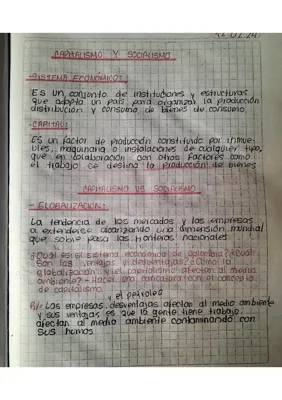 12.02.24
CAPITALISMO Y SOCIALISMO
-SISTEMA ECONÓMICO:
ES un conjunto de instituciones y estructuras
que adopta un país para organizar la producción
distribución y consumo de bienes de consumo.
-CAPITAL:
ES un factor de producción constituido por inmue-
bles, maquinaria o instalaciones de cualquier tipo,
que en colaboración con otros factores como
el trabajo se destina la producción de bienes
CAPITALISMO VS SOCIALISMO
- GLOBALIZACION:
La tendencia de los mercados y las empresas
a extenderse alcanzando una dimensión mundial
que sobre pasa las fronteras nacionales
¿Cual es el sistema económico de colombia? ¿Cual
Son las ventajas y desventajas? ¿Cómo la
globalización y el capitalismo afectan al medio
ambiente? - Hacer una caricatura con el concepto
de capitalismo
y el petroleo
R/= Las empresas, desventajas afectan al medio ambiente
y sus ventajas es que la gente tiene trabajo
afectan al medio ambiente contaminando con
sus humos